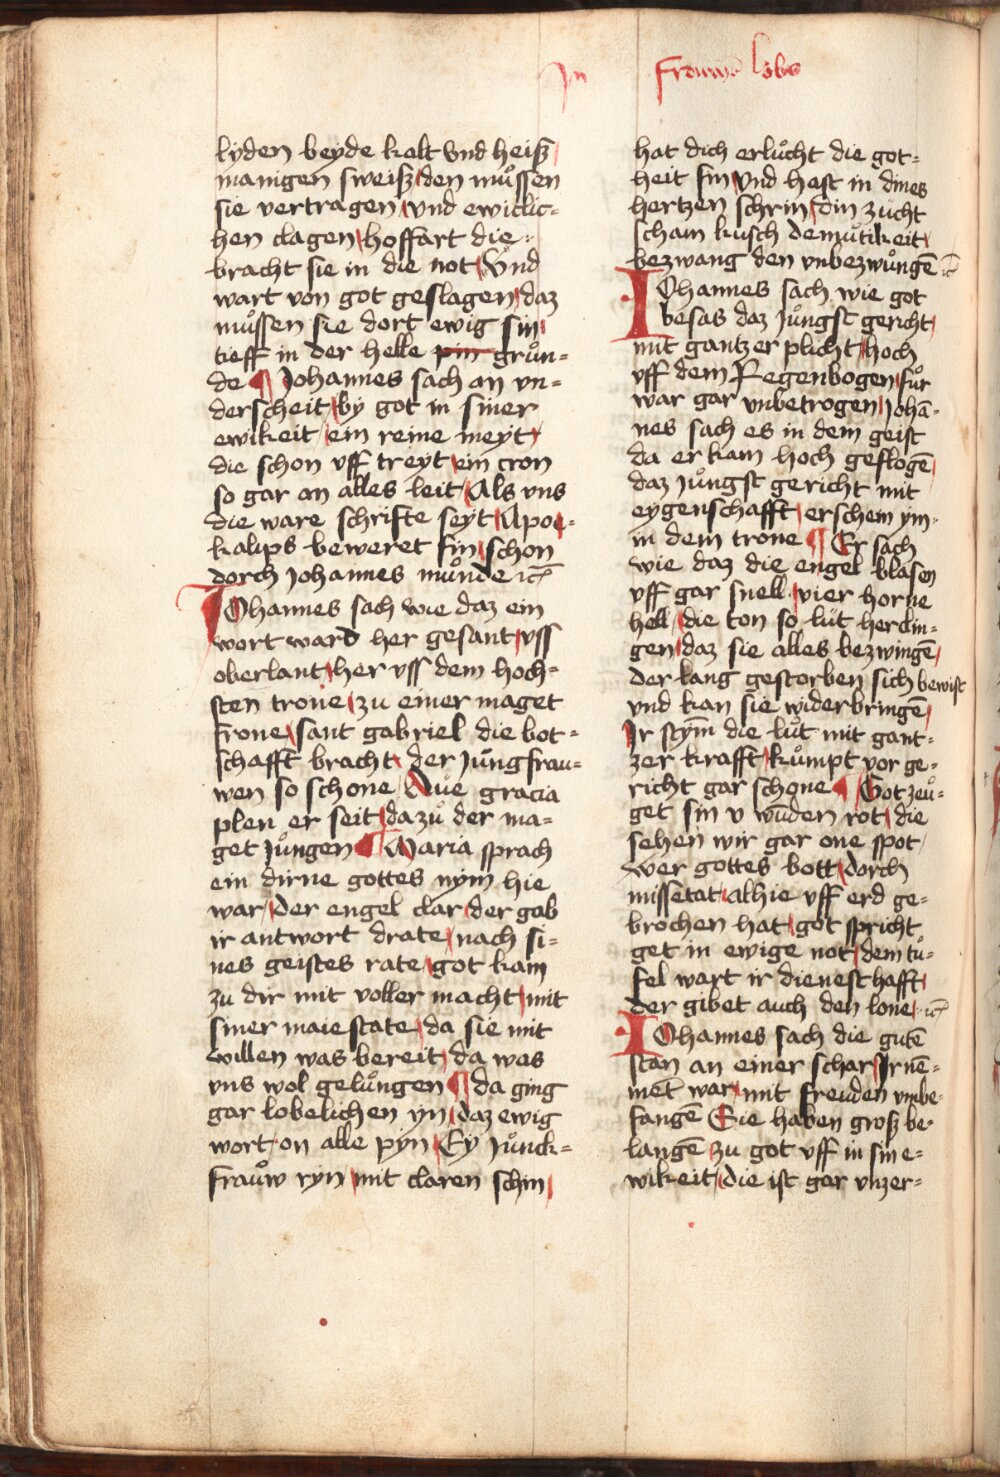 In Frouwē lobs
lyden beyde kalt vnd heisz
manigen sweisz / den muͦssen
sie vertragen / vnd ewiclic=
hen clagen / hoffart die=
bracht sie in die not / Vnd
wart von got geslagen / daz
muͦssen sie dort ewig sin /
tieff in der helle pin gruͦn=
de ¶ Johannes sach an vn=
derscheit / by got in siner
ewikeit / ein reine meyt /
die schon vff treyt / ein cron
so gar an alles leit / Als vns
die ware schrifte seyt / Apoc=
kalips beweret sin / schon
dorch Johannes muͦnde ꝛc̄
JOhannes sach wie daz ein
wort ward her gesant / vss
oberlant / her vss dem hoch=
sten trone / zu einer maget
frone / sant gabriel die bot=
schafft bracht / der Juͦngfrau=
wen so schone Aue gracia
plen er seit / dazuͦ der ma=
get Juͦngen ¶ Maria sprach
ein dirne gottes nym hie
war / Der engel clar / der gab
ir antwort drate / nach si=
nes geistes rate / got kam
zu dir mit voller macht / mit
siner maiestate / da sie mit
willen was bereit / da was
vns wol geluͦngen ¶ da ging
gar lobelichen yn / daz ewig
wort on alle pyn / Ey Juͦnck=
frauͦw ryn / mit claren schin /
hat dich erluͦcht die got=
heit sin / vnd hest in dines
hertzen schrin / din zucht
scham kusch demuͦtikeit /
bezwang den vnbezwuͦngē ꝛc̄
JOhannes sach wie got
besas daz Juͦngst gericht /
mit gantzer plicht / hoch
vff dem Regenbogen / fuͦr
war gar vnbetrogen / Johā=
nes sach es in dem geist
da er kam hoch geflogē /
daz Juͦngst gericht mit
eygenschafft / erschein ym=
in dem trone ¶ Er sach
wie daz die engel blasen
vff gar snell / vier horne
hell / die ton so lut herclin=
gen / daz sie alles bezwingē /
der lang gestorben sich bewist
vnd kan sie widerbringē /
Ir stym̄ die luͦt mit gant=
zer krafft / kuͦmpt vor ge=
richt gar schone ¶ Got zeuͦ=
get sin v wūden rot / die
sehen wir gar one spot /
wer gottes bott / dorch
missetat / alhie vff erd ge=
brochen hat / got spricht
get in ewige not / dem tuͦ=
fel wart ir dieneschafft /
der gibet auch den lone / ꝛc̄
JOhannes sach die gutē
stan an einer schar / Ir nē=
met war / mit freuden vmbe=
fangē Sie haben grosz be=
langē zu got vff in sin e=
wikeit / die ist gar vnzer=